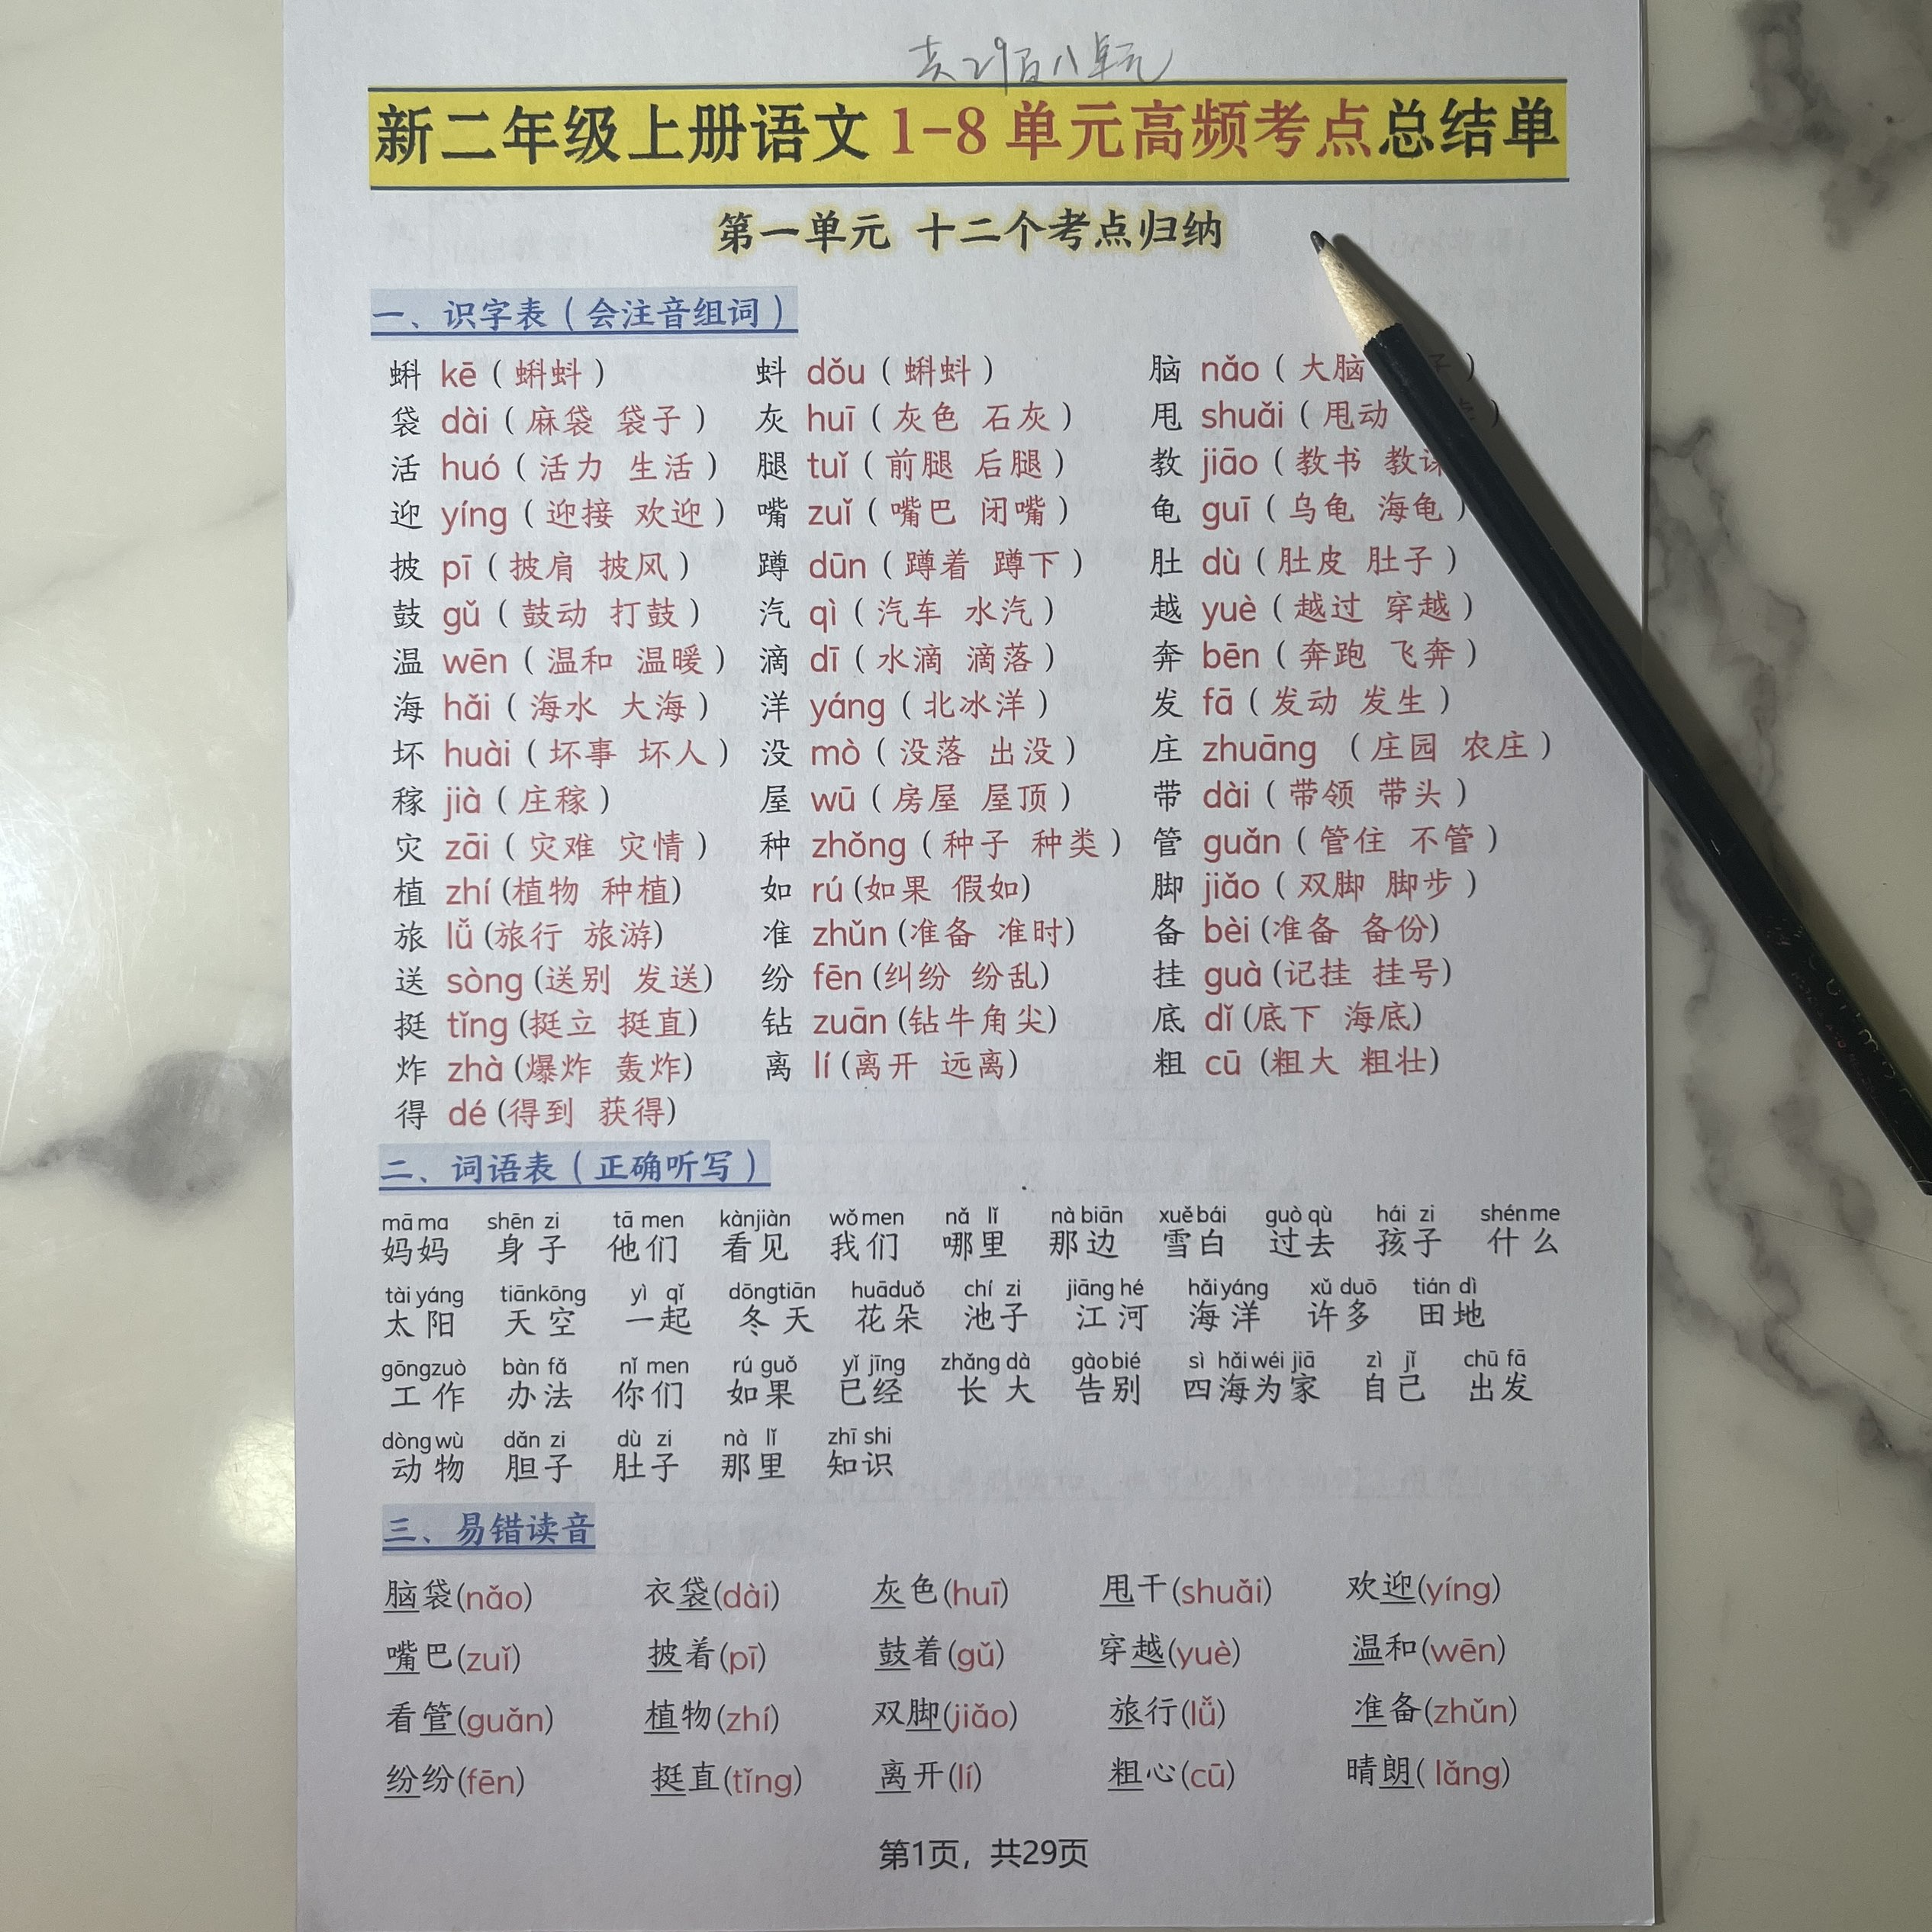 共29页八单元
新二年级上册语文 1-8 单元高频考点总结单
第一单元 十二个考点归纳
一、识字表（会注音组词）
蝌 kē（蝌蚪） 蚪 dǒu（蝌蚪） 脑 nǎo（大脑 ）
袋 dài（麻袋 袋子） 灰 huī（灰色 石灰） 甩 shuǎi（甩动 ）
活 huó（活力 生活） 腿 tuǐ（前腿 后腿） 教 jiāo（教书 教课
迎 yíng（迎接 欢迎） 嘴 zuǐ（嘴巴 闭嘴） 龟 guī（乌龟 海龟）
披 pī（披肩 披风） 蹲 dūn（蹲着 蹲下） 肚 dù（肚皮 肚子）
鼓 gǔ（鼓动 打鼓） 汽 qì（汽车 水汽） 越 yuè（越过 穿越）
温 wēn（温和 温暖） 滴 dī（水滴 滴落） 奔 bēn（奔跑 飞奔）
海 hǎi（海水 大海） 洋 yáng（北冰洋） 发 fā（发动 发生）
坏 huài（坏事 坏人） 没 mò（没落 出没） 庄 zhuāng （庄园 农庄）
稼 jià（庄稼） 屋 wū（房屋 屋顶） 带 dài（带领 带头）
灾 zāi（灾难 灾情） 种 zhǒng（种子 种类） 管 guǎn（管住 不管）
植 zhí (植物 种植) 如 rú (如果 假如) 脚 jiǎo（双脚 脚步）
旅 lǚ (旅行 旅游) 准 zhǔn (准备 准时) 备 bèi (准备 备份)
送 sòng (送别 发送) 纷 fēn (纠纷 纷乱) 挂 guà (记挂 挂号)
挺 tǐng (挺立 挺直) 钻 zuān (钻牛角尖) 底 dǐ (底下 海底)
炸 zhà (爆炸 轰炸) 离 lí (离开 远离) 粗 cū (粗大 粗壮)
得 dé (得到 获得)
二、词语表（正确听写）
mā ma shēn zi tā men kànjiàn wǒ men nǎ lǐ nà biān xuě bái guò qù hái zi shén me
妈妈 身子 他们 看见 我们 哪里 那边 雪白 过去 孩子 什么
tài yáng tiānkōng yì qǐ dōngtiān huāduǒ chí zi jiāng hé hǎi yáng xǔ duō tián dì
太阳 天空 一起 冬天 花朵 池子 江河 海洋 许多 田地
gōngzuò bàn fǎ nǐ men rú guǒ yǐ jīng zhǎng dà gào bié sì hǎi wéi jiā zì jǐ chū fā
工作 办法 你们 如果 已经 长大 告别 四海为家 自己 出发
dòng wù dǎn zi dù zi nà lǐ zhī shi
动物 胆子 肚子 那里 知识
三、易错读音
脑袋(nǎo) 衣袋(dài) 灰色(huī) 甩干(shuǎi) 欢迎(yíng)
嘴巴(zuǐ) 披着(pī) 鼓着(gǔ) 穿越(yuè) 温和(wēn)
看管(guǎn) 植物(zhí) 双脚(jiǎo) 旅行(lǚ) 准备(zhǔn)
纷纷(fēn) 挺直(tǐng) 离开(lí) 粗心(cū) 晴朗( lǎng)
第1页，共29页